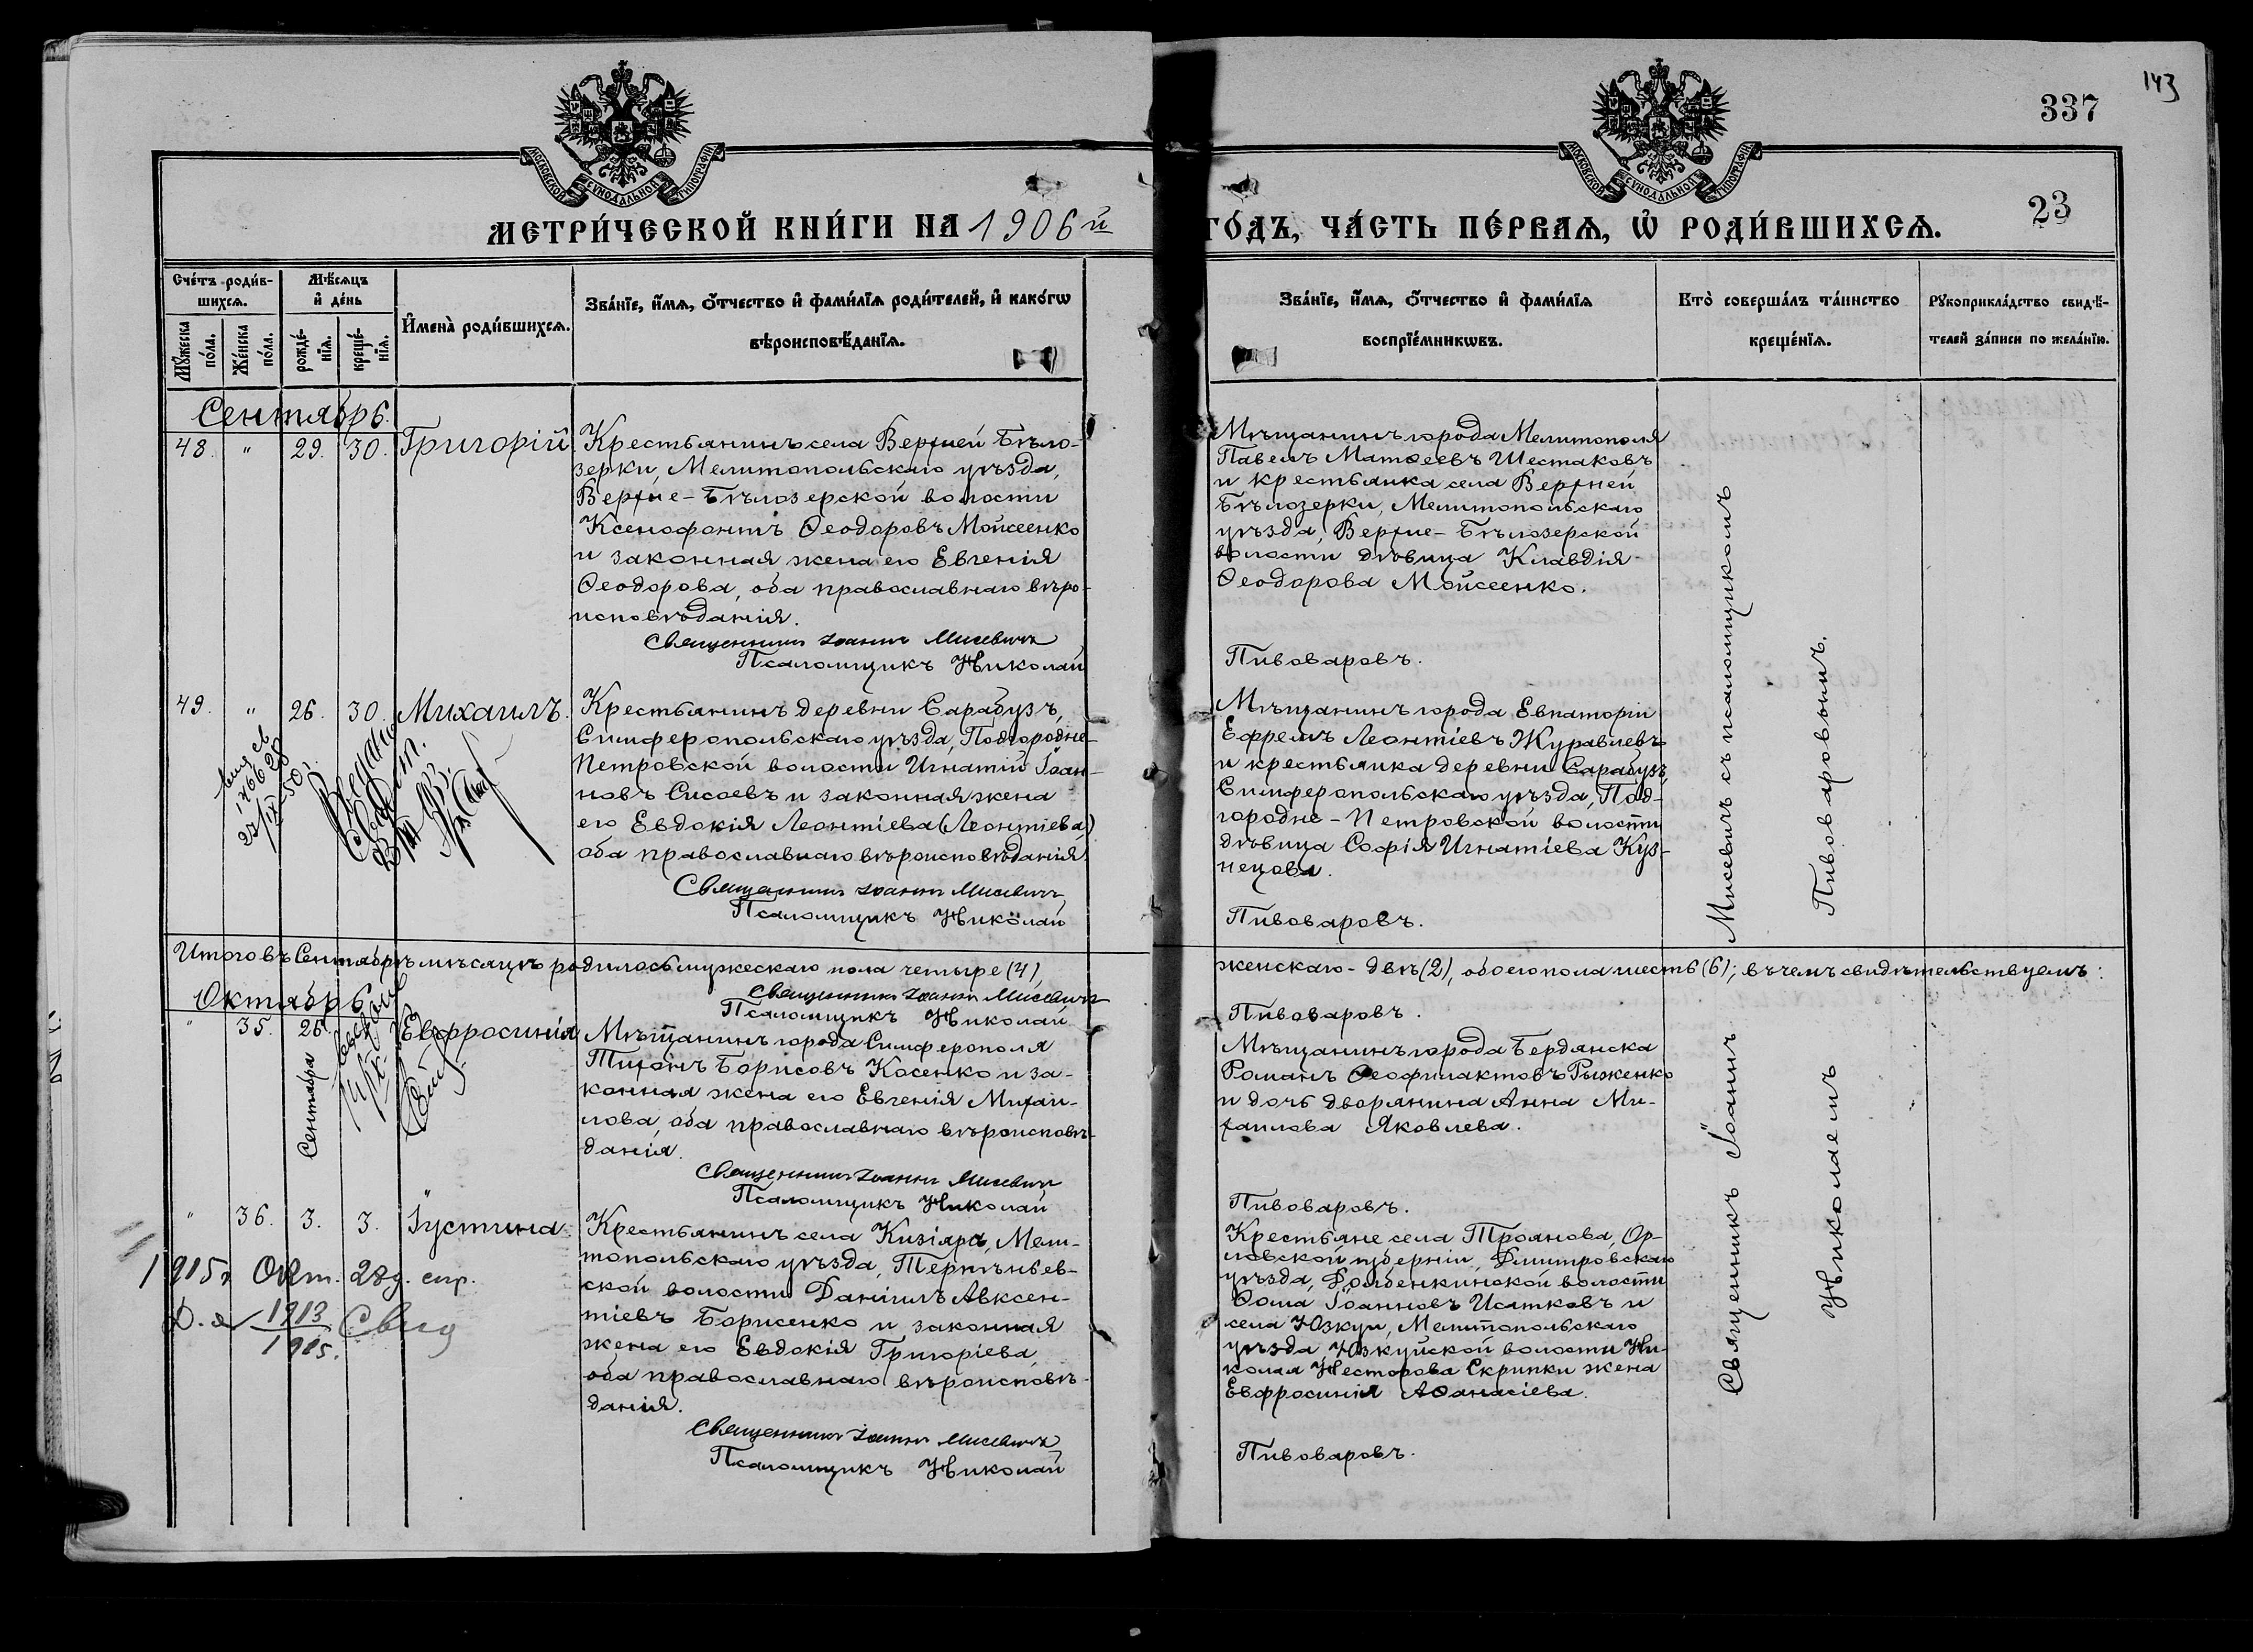 143
337
23
МОСКОВСКОЙ СѴНОДАЛЬНОЙ ТИПОГРАФІИ
МОСКОВСКОЙ СѴНОДАЛЬНОЙ ТИПОГРАФІИ
МЕТРИ́ЧЕСКОЙ КНИ́ГИ НА 1906й
ГО́ДЪ, ЧА́СТЬ ПЕ́РВАѦ, Ѡ҆ РОДИ́ВШИХСѦ.
Сче́тъ роди́в-
шихсѧ.
Мꙋ́жеска по́ла.
Же́нска по́ла.
Мѣ́сѧцъ
и҆ де́нь
рожде́-
нїѧ.
креще́-
нїѧ.
И҆мена̀ роди́вшихсѧ.
Зва́нїе, и҆́мѧ, ѻ҆́тчество и҆ фами́лїѧ роди́телей, и҆ како́гѡ
вѣроисповѣ́данїѧ.
Зва́нїе, и҆́мѧ, ѻ҆́тчество и҆ фами́лїѧ
воспрїе́мникѡвъ.
Кто̀ соверша́лъ та́инство
креще́нїѧ.
Рꙋкоприкла́дство свидѣ́-
телей за́писи по жела́нїю.
Сентябрь.
48. " 29. 30. Григорій
Крестьянинъ села Верхней Бѣло-
зерки, Мелитопольскаго уѣзда,
Верхне-Бѣлозерской волости
Ксенофонтъ Ѳеодоровъ Мойсеенко
и законная жена его Евгенія
Ѳеодорова, оба православнаго вѣро-
исповѣданія.
Священникъ Іоаннъ Мисевичъ
Псаломщикъ Николай
Мѣщанинъ города Мелитополя
Павелъ Матѳеевъ Шестаковъ
и крестьянка села Верхней
Бѣлозерки, Мелитопольскаго
уѣзда, Верхне-Бѣлозерской
волости дѣвица Клавдія
Ѳеодорова Мойсеенко.
Пивоваровъ.
49. " 26. 30. Михаилъ.
Крестьянинъ деревни Сарабузъ,
Симферопольскаго уѣзда, Подгородне-
Петровской волости Игнатій Іоан-
новъ Сисоевъ и законная жена
его Евдокія Леонтіева (Леонтіева)
оба православнаго вѣроисповѣданія.
Священникъ Іоаннъ Мисевичъ
Псаломщикъ Николай
Мѣщанинъ города Евпаторіи
Ефремъ Леонтіевъ Журавлевъ
и крестьянка деревни Сарабузъ,
Симферопольскаго уѣзда, Под-
городне-Петровской волости
дѣвица Софія Игнатіева Куз-
нецова.
Пивоваровъ.
Итого въ Сентябрѣ мѣсяцѣ родилось мужескаго пола четыре (4),
женскаго - двѣ (2), обоего пола шесть (6); въ чемъ свидѣтельствуемъ:
Священникъ Іоаннъ Мисевичъ
Псаломщикъ Николай
Пивоваровъ.
Октябрь
" 35. 26 Евфросинія
Сентября
Мѣщанинъ города Симферополя
Тихонъ Борисовъ Косенко и за-
конная жена его Евгенія Михаи-
лова, оба православнаго вѣроисповѣ-
данія.
Священникъ Іоаннъ Мисевичъ
Псаломщикъ Николай
Мѣщанинъ города Бердянска
Романъ Ѳеофилактовъ Рыженко
и дочь дворянина Анна Ми-
хаилова Яковлева.
Пивоваровъ.
" 36. 3. 3. Іустина.
Крестьянинъ села Кизіяра, Мели-
топольскаго уѣзда, Терпѣньев-
ской волости Даніилъ Авксен-
тіевъ Борисенко и законная
жена его Евдокія Григоріева,
оба православнаго вѣроисповѣ-
данія.
Священникъ Іоаннъ Мисевичъ
Псаломщикъ Николай
Крестьяне села Троянова, Ор-
ловской губерніи, Дмитровскаго
уѣзда, Долбенкинской волости
Ѳома Іоанновъ Исатковъ и
села Юзкуи, Мелитопольскаго
уѣзда Юзкуйской волости Ни-
колая Несторова Скрипки жена
Евфросинія Аѳанасіева.
Пивоваровъ.
1915г Окт. 28д. спр.
1913
1915.
Свид
Священникъ Іоаннъ Мисевичъ съ псаломщикомъ
Николаемъ Пивоваровымъ.